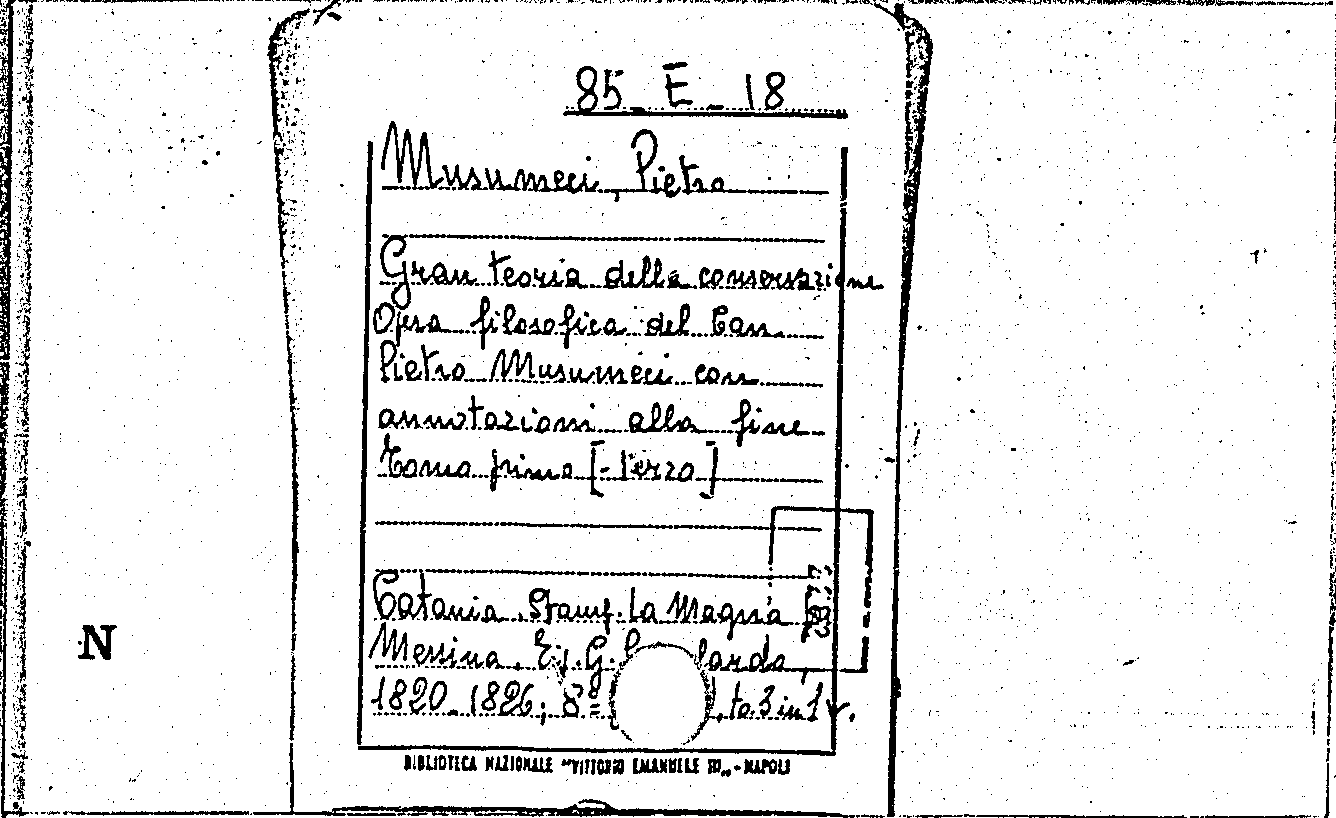 85 - E - 18
Musumeci, Pietro
Gran teoria della conservazione
Opra filosofica del Can.
Pietro Musumeci con
annotazioni alla fine
Tomo primo [-terzo]
Catania, Stamp. La Magna
Messina, G.
1820-1826; 8º , to. 3 in 1 v.
BIBLIOTECA NAZIONALE "VITTORIO EMANUELE III" - NAPOLI
N